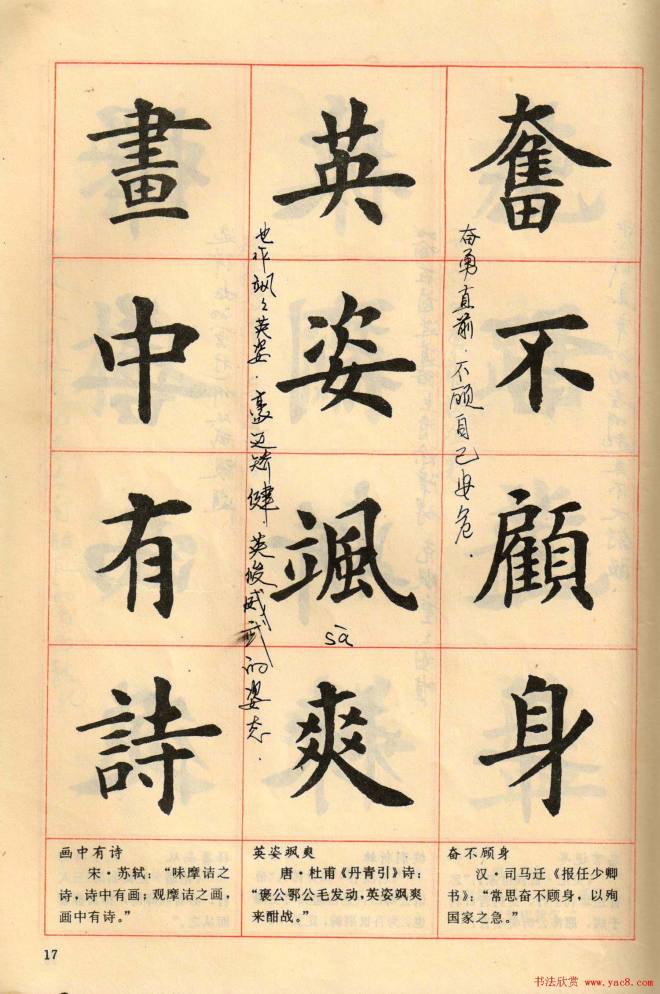 奮不顧身
奋勇直前．不顾自己安危．
英姿颯爽
sà
也作飒々英姿．豪迈矫健．英俊威武的姿态．
畫中有詩
奋不顾身
汉·司马迁《报任少卿
书》：“常思奋不顾身，以殉
国家之急。”
英姿飒爽
唐·杜甫《丹青引》诗：
“褒公鄂公毛发动，英姿飒爽
来酣战。”
画中有诗
宋·苏轼：“味摩诘之
诗，诗中有画；观摩诘之画，
画中有诗。”
17
书法欣赏 www.yac8.com